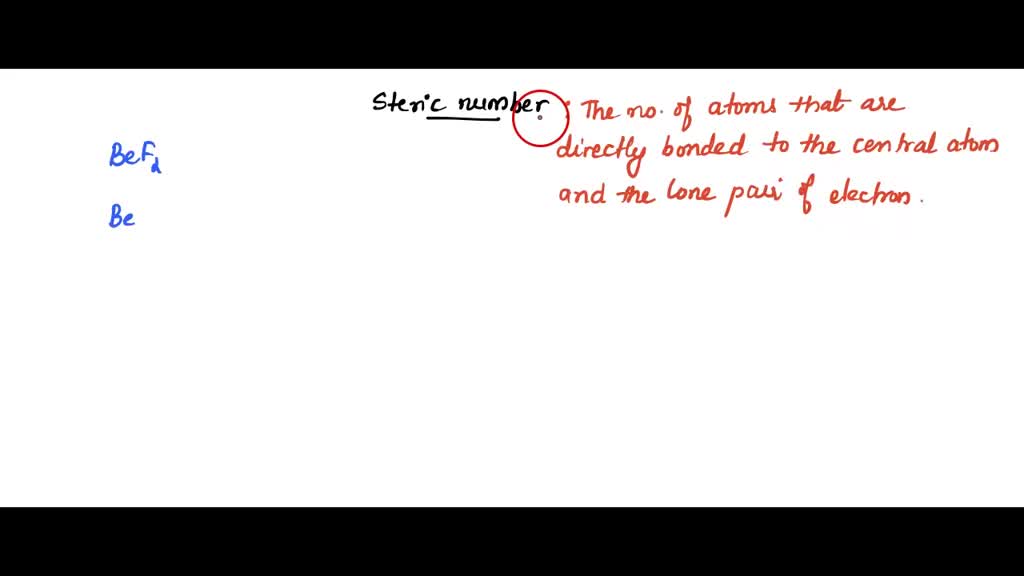 Steric number : The no. of atoms that are
directly bonded to the central atom
and the lone pair of electron.
BeF2
Be